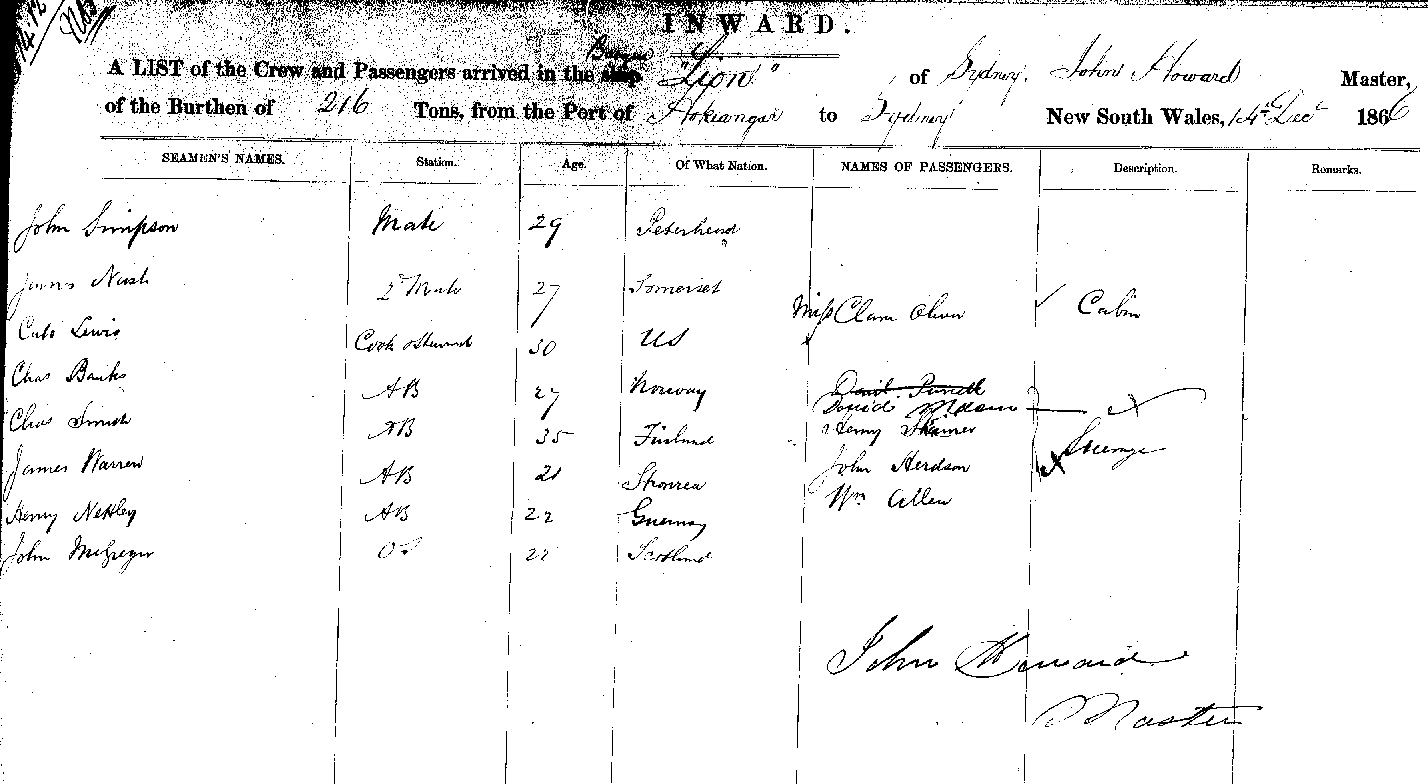 INWARD.
A LIST of the Crew and Passengers arrived in the ship Barque "Lion" of Sydney, John Howard Master,
of the Burthen of 216 Tons, from the Port of Hokianga to Sydney New South Wales, 14th Dec 1866
SEAMEN'S NAMES. Station. Age. Of What Nation. NAMES OF PASSENGERS. Description. Remarks.
John Simpson Mate 29 Peterhead
James Nash 2d Mate 27 Somerset
Miss Clara Oliver Cabin
Lewis Cook & Steward 30 US
Chas Banks AB 27 Norway
David
Chas Smith AB 35 Finland Henry
Steerage
James Warren AB 21 John Herdson
Henry AB 22 Guernsey Wm Allen
John McGregor OS 22 Scotland
John Howard
Master